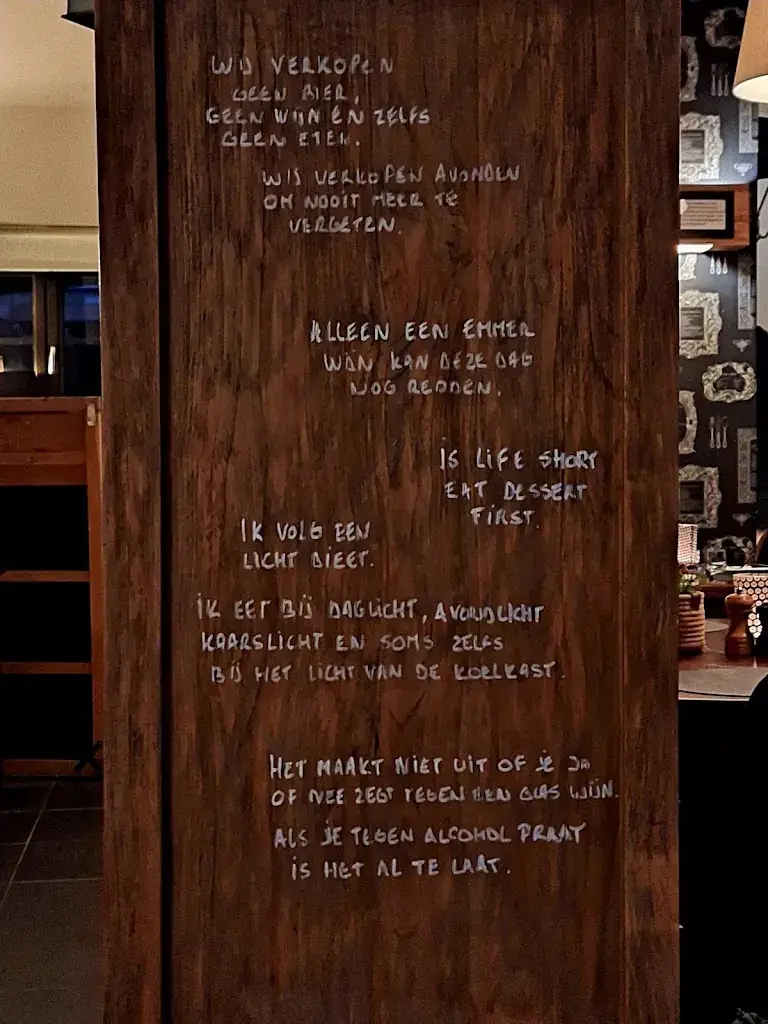 WIJ VERKOPEN
GEEN BIER,
GEEN WIJN EN ZELFS
GEEN ETEN.
WIJ VERKOPEN AVONDEN
OM NOOIT MEER TE
VERGETEN.
ALLEEN EEN EMMER
WIJN KAN DEZE DAG
NOG REDDEN.
IS LIFE SHORT
EAT DESSERT
FIRST.
IK VOLG EEN
LICHT DIEET.
IK EET BIJ DAGLICHT, AVONDLICHT
KAARSLICHT EN SOMS ZELFS
BIJ HET LICHT VAN DE KOELKAST.
HET MAAKT NIET UIT OF JE JA
OF NEE ZEGT TEGEN EEN GLAS WIJN.
ALS JE TEGEN ALCOHOL PRAAT
IS HET AL TE LAAT.